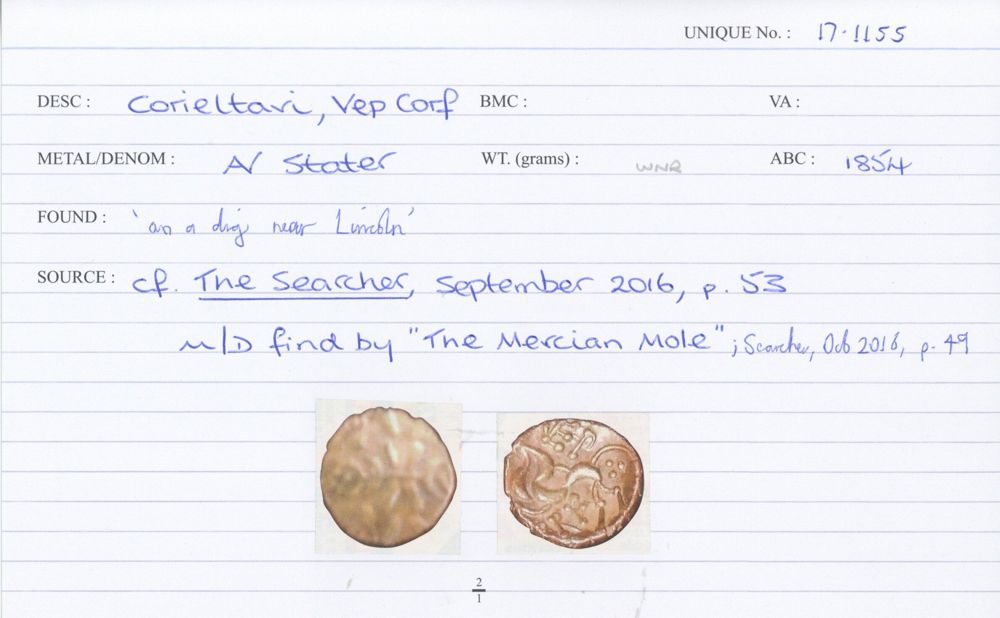 UNIQUE No. : 17.1155
DESC : Corieltavi, Vep Corf BMC : VA :
METAL/DENOM : AV Stater WT. (grams) : WNR ABC : 1854
FOUND : 'on a dig near Lincoln'
SOURCE : cf. The Searcher, September 2016, p. 53
M/D find by "The Mercian Mole" ; Searcher, Oct 2016, p. 49
VEP
2
1